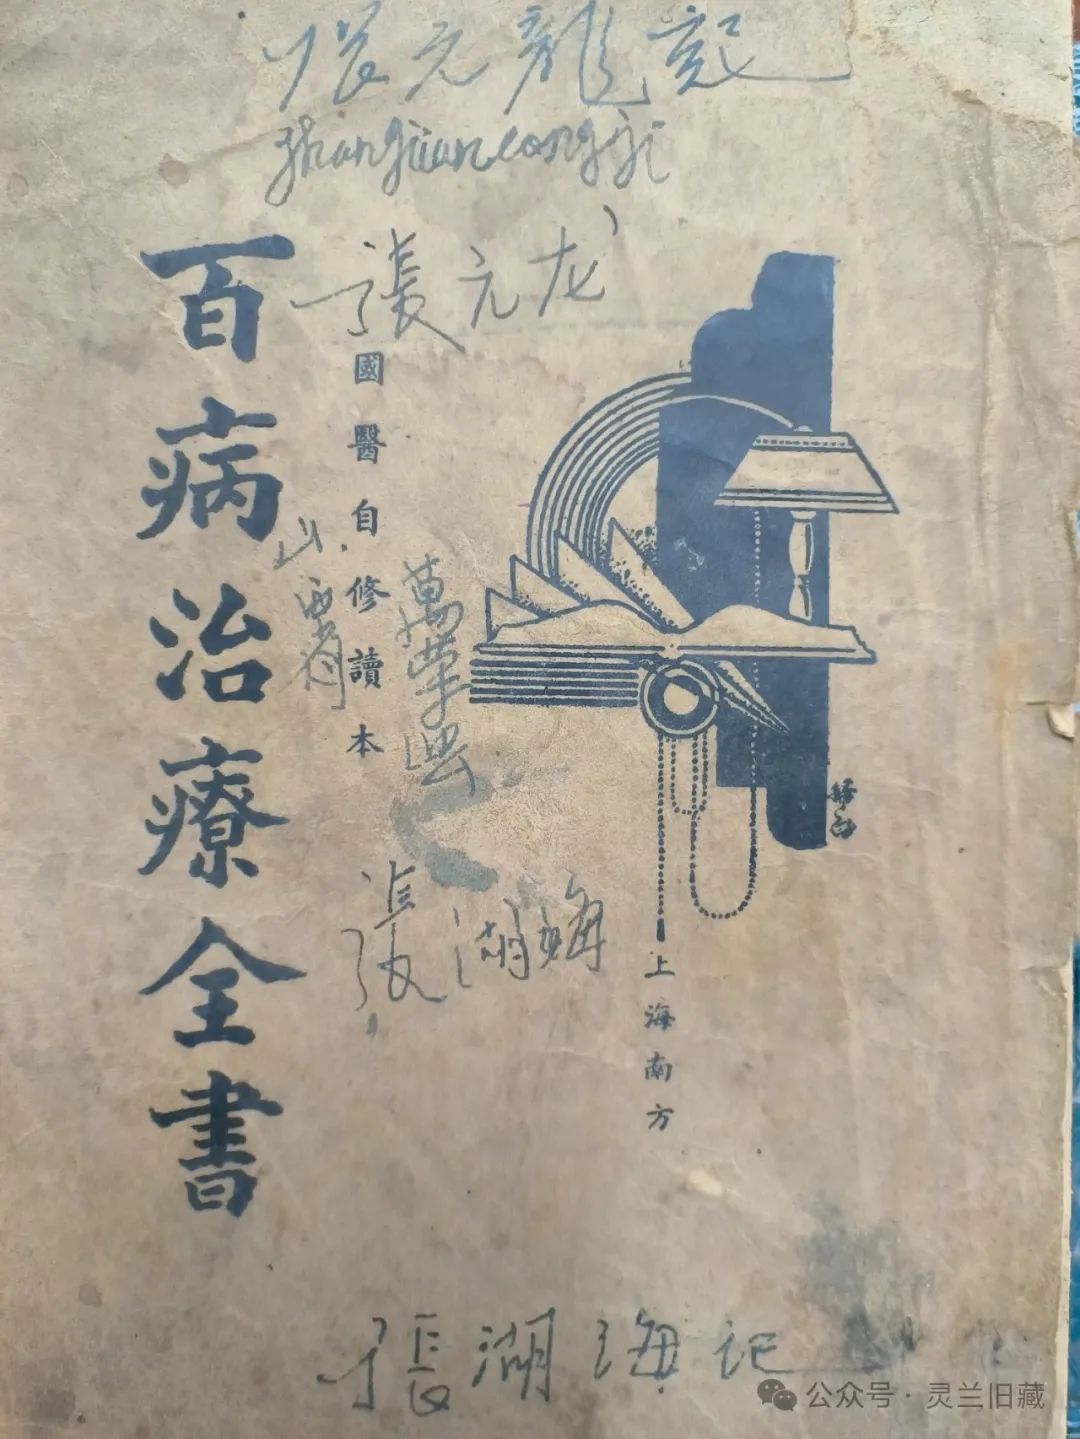 张元龍記
zhangyuanlongji
張元龙
百病治療全書
國醫自修讀本
山西省
萬荣县
張湖海
上海南方
張湖海记
公众号·灵兰旧藏